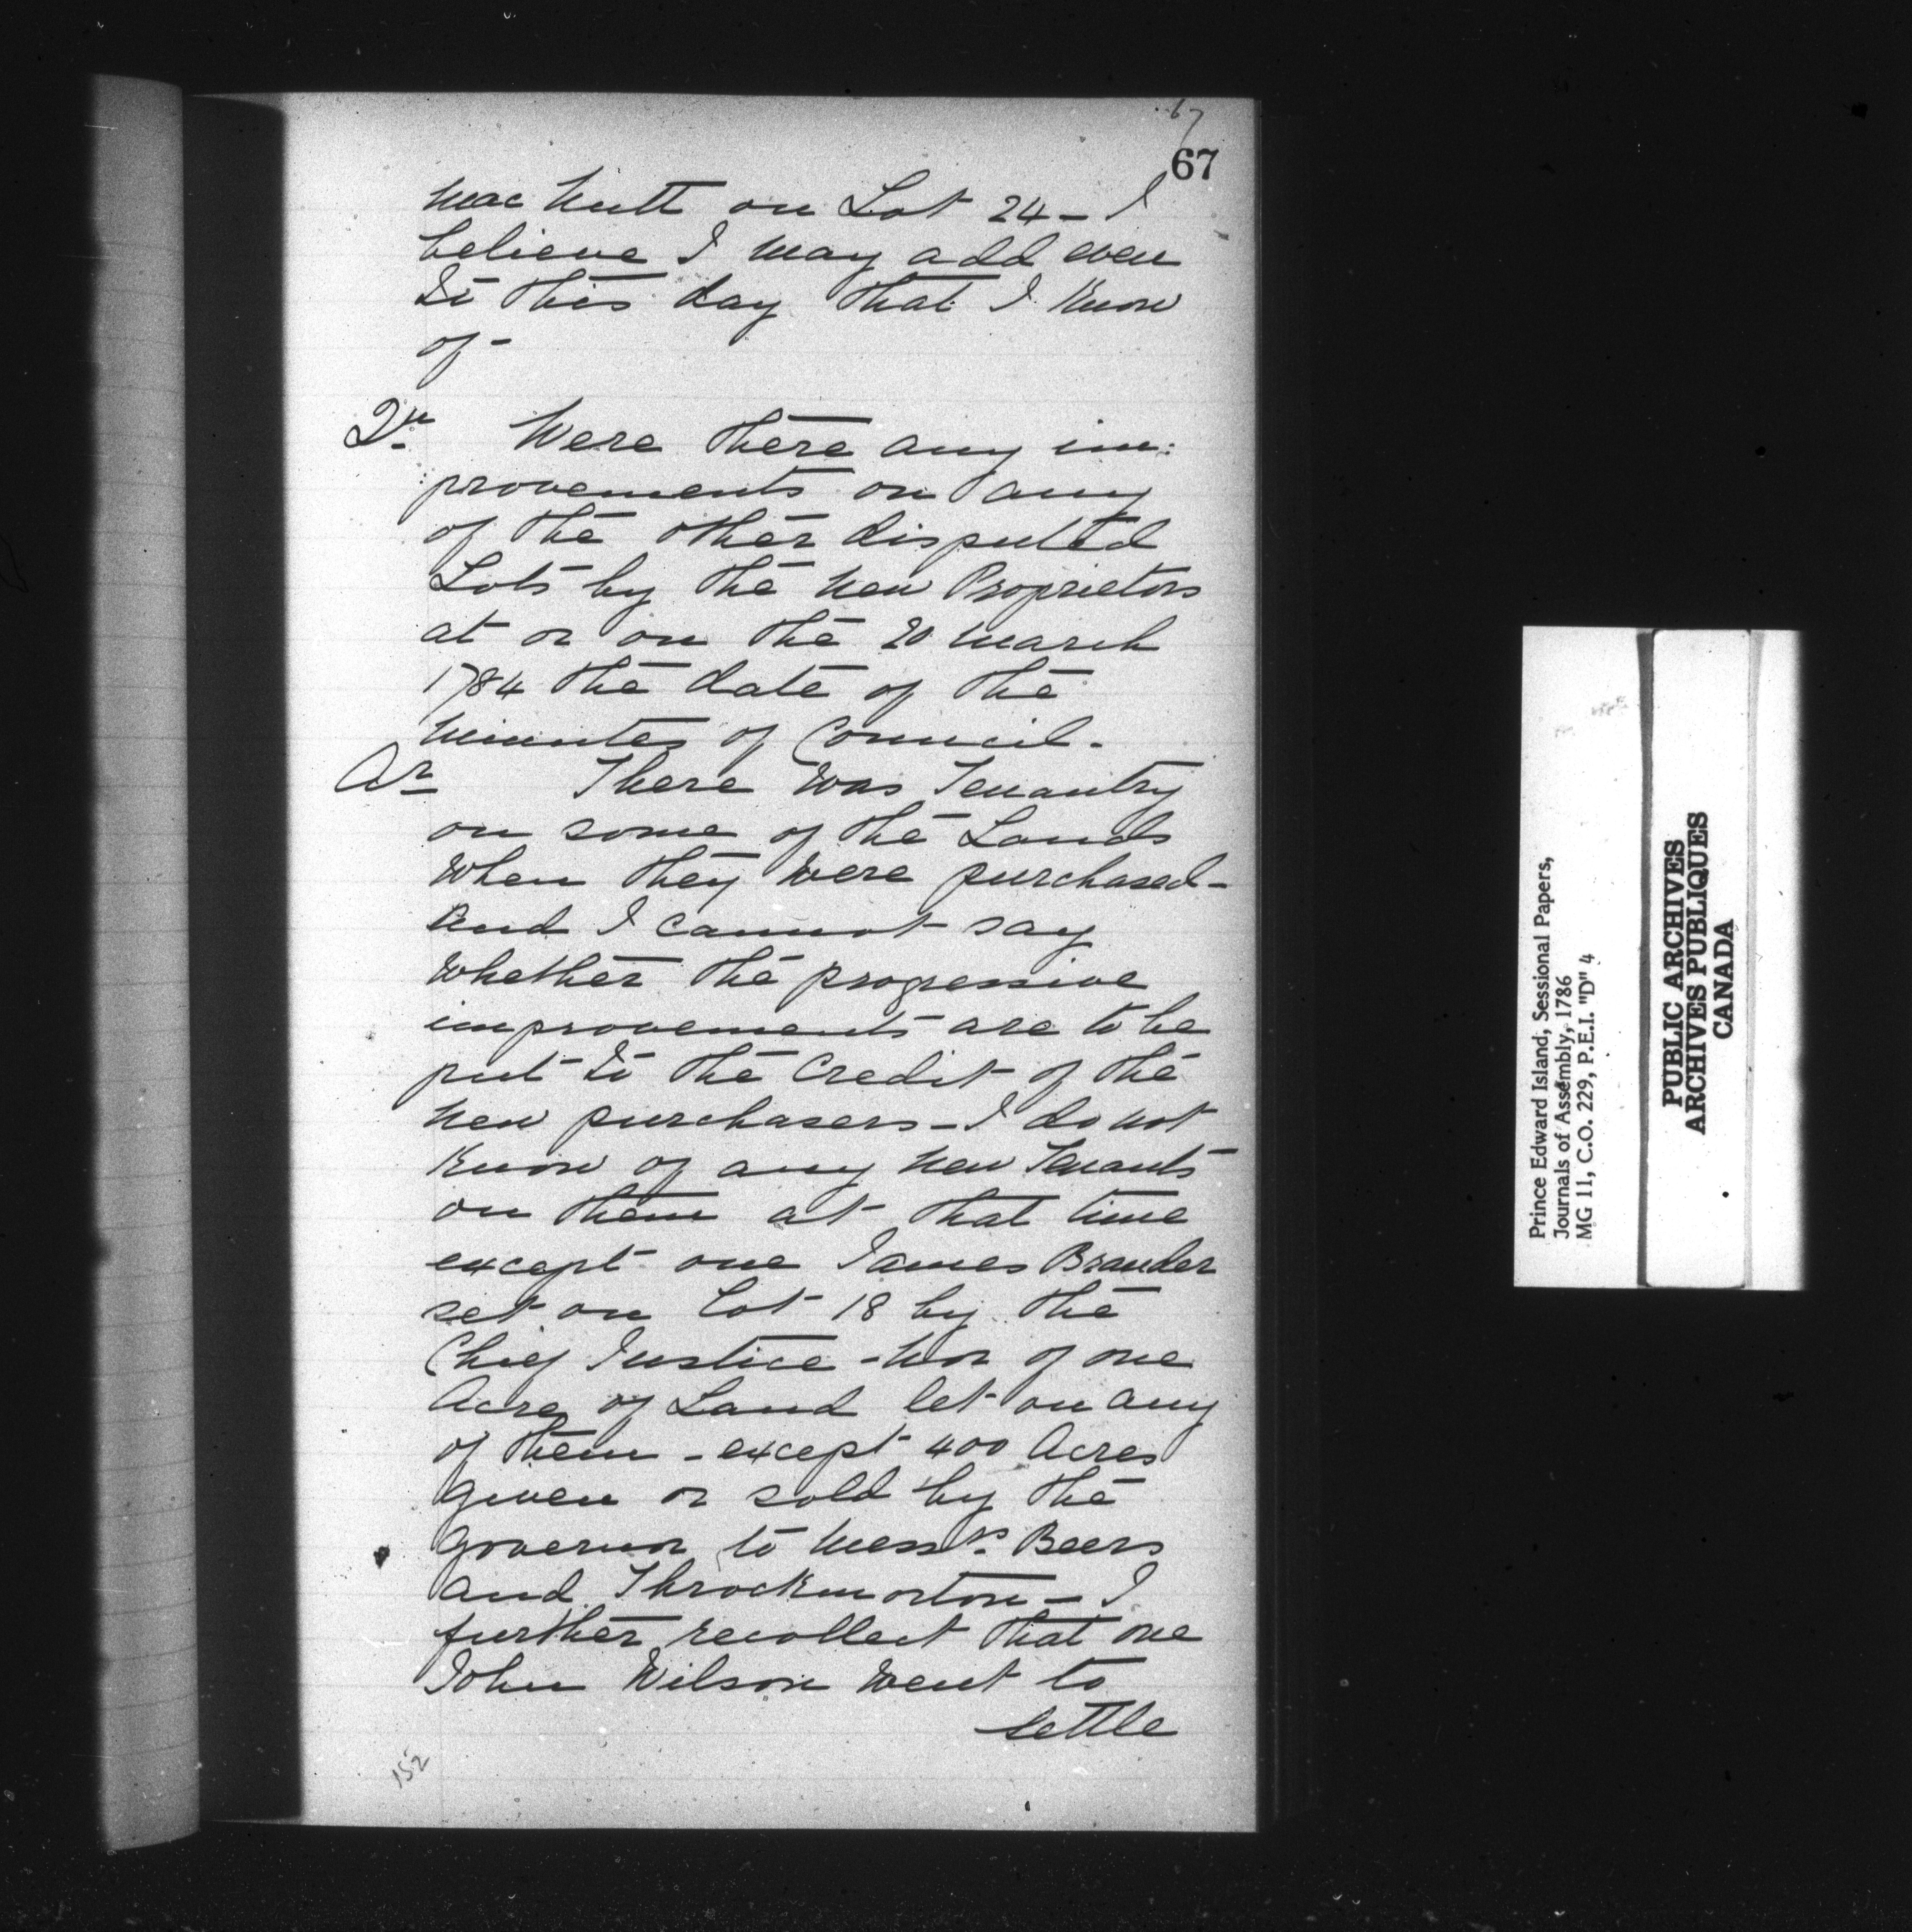 67
67
Mac Nutt on Lot 24 - I
believe I may add even
to this day that I know
of -
Qn Were there any im:
:provements on any
of the other disputed
Lots by the new Proprietors
at or on the 20 March
1784 the date of the
Minutes of Council.
Ar There was Tenantry
on some of the Lands
when they were purchased -
and I cannot say
whether the progressive
improvements are to be
put to the Credit of the
new purchasers - I do not
know of any new Tenants
on them at that time
except one James Brander
set on Lot 18 by the
Chief Justice - nor of one
Acre of Land let on any
of them - except 400 Acres
given or sold by the
Governor to Messrs. Beers
and Throckmorton - I
further recollect that one
John Wilson went to
settle
152
Prince Edward Island, Sessional Papers,
Journals of Assembly, 1786
MG 11, C.O. 229, P.E.I. "D" 4
PUBLIC ARCHIVES
ARCHIVES PUBLIQUES
CANADA